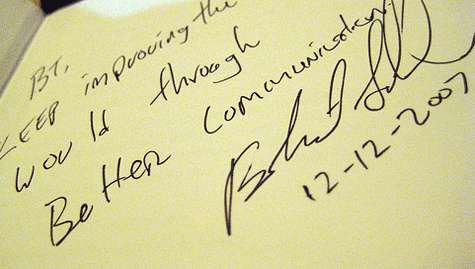 BT,
KEEP improving the
would through
Better Communication
12-12-2007